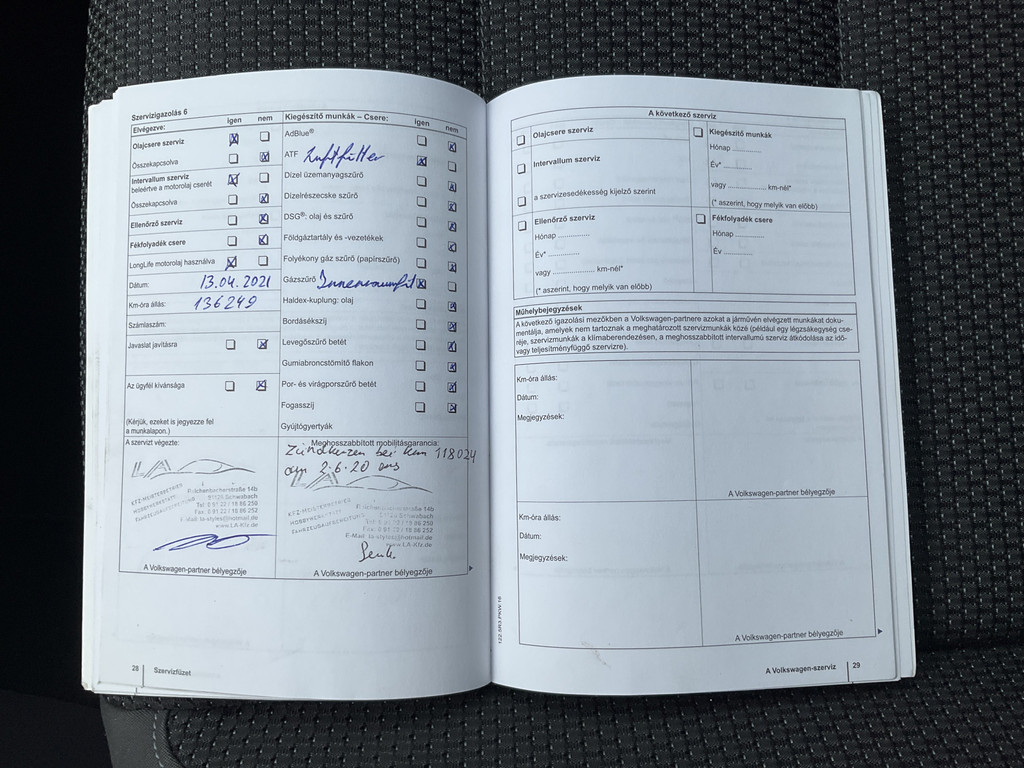 Szervizigazolás 6
Elvégezve: igen nem
Olajcsere szerviz
Összekapcsolva
Intervallum szerviz
beleértve a motorolaj cserét
Összekapcsolva
Ellenőrző szerviz
Fékfolyadék csere
LongLife motorolaj használva
Dátum: 13.04.2021
Km-óra állás: 136249
Számlaszám:
Javaslat javításra
Az ügyfél kívánsága
(Kérjük, ezeket is jegyezze fel
a munkalapon.)
A szervizt végezte:
LA
KFZ-MEISTERBETRIEB
HOBBYWERKSTATT
FAHRZEUGAUFBEREITUNG
91126 Schwabach
Tel: 0 91 22 / 18 86 250
Fax: 0 91 22 / 18 86 252
E-Mail: la-styles@hotmail.de
www.LA-Kfz.de
A Volkswagen-partner bélyegzője
Kiegészítő munkák – Csere: igen nem
AdBlue®
ATF Luftfilter
Dízel üzemanyagszűrő
Dízelrészecske szűrő
DSG®: olaj és szűrő
Földgáztartály és -vezetékek
Folyékony gáz szűrő (papírszűrő)
Gázszűrő Innenraumfilt
Haldex-kuplung: olaj
Bordásékszíj
Levegőszűrő betét
Gumiabroncstömítő flakon
Por- és virágporszűrő betét
Fogasszíj
Gyújtógyertyák
Meghosszabbított mobilitásgarancia:
Zündkerzen bei km 118024
am 2.6.20 ans
LA
KFZ-MEISTERBETRIEB
HOBBYWERKSTATT
FAHRZEUGAUFBEREITUNG
91126 Schwabach
Tel: 0 91 22 / 18 86 250
Fax: 0 91 22 / 18 86 252
E-Mail: la-styles@hotmail.de
www.LA-Kfz.de
A Volkswagen-partner bélyegzője
28 Szervizfüzet
122.5R3.PKW.16
A következő szerviz
Olajcsere szerviz
Intervallum szerviz
a szervizesedékesség kijelző szerint
Ellenőrző szerviz
Hónap ............
Év* ............
vagy ................ km-nél*
(* aszerint, hogy melyik van előbb)
Kiegészítő munkák
Hónap ............
Év* ............
vagy ................ km-nél*
(* aszerint, hogy melyik van előbb)
Fékfolyadék csere
Hónap ............
Év ............
Műhelybejegyzések
A következő igazolási mezőkben a Volkswagen-partnere azokat a járművén elvégzett munkákat doku-
mentálja, amelyek nem tartoznak a meghatározott szervizmunkák közé (például egy légzsákegység cse-
réje, szervizmunkák a klímaberendezésen, a meghosszabbított intervallumú szerviz átkódolása az idő-
vagy teljesítményfüggő szervizre).
Km-óra állás:
Dátum:
Megjegyzések:
A Volkswagen-partner bélyegzője
Km-óra állás:
Dátum:
Megjegyzések:
A Volkswagen-partner bélyegzője
A Volkswagen-szerviz 29